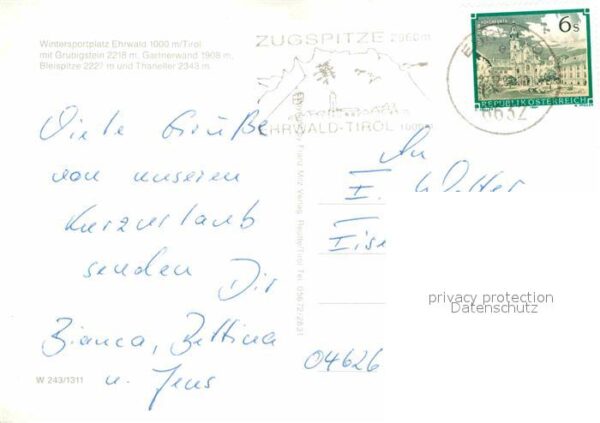 Wintersportplatz Ehrwald 1000 m/Tirol
mit Grubigstein 2218 m, Gartnerwand 1908 m,
Bleispitze 2227 m und Thaneller 2343 m
ZUGSPITZE 2960m
EHRWALD-TIROL 1000m
6632
6s
REPUBLIK ÖSTERREICH
Viele Grüße
von unseren
Kurzurlaub
senden Dir
Bianca, Bettina
u. Jens
W 243/1311
Franz Milz Verlag, Reutte/Tirol Tel. 05672/2831
An
04626
privacy protection
Datenschutz